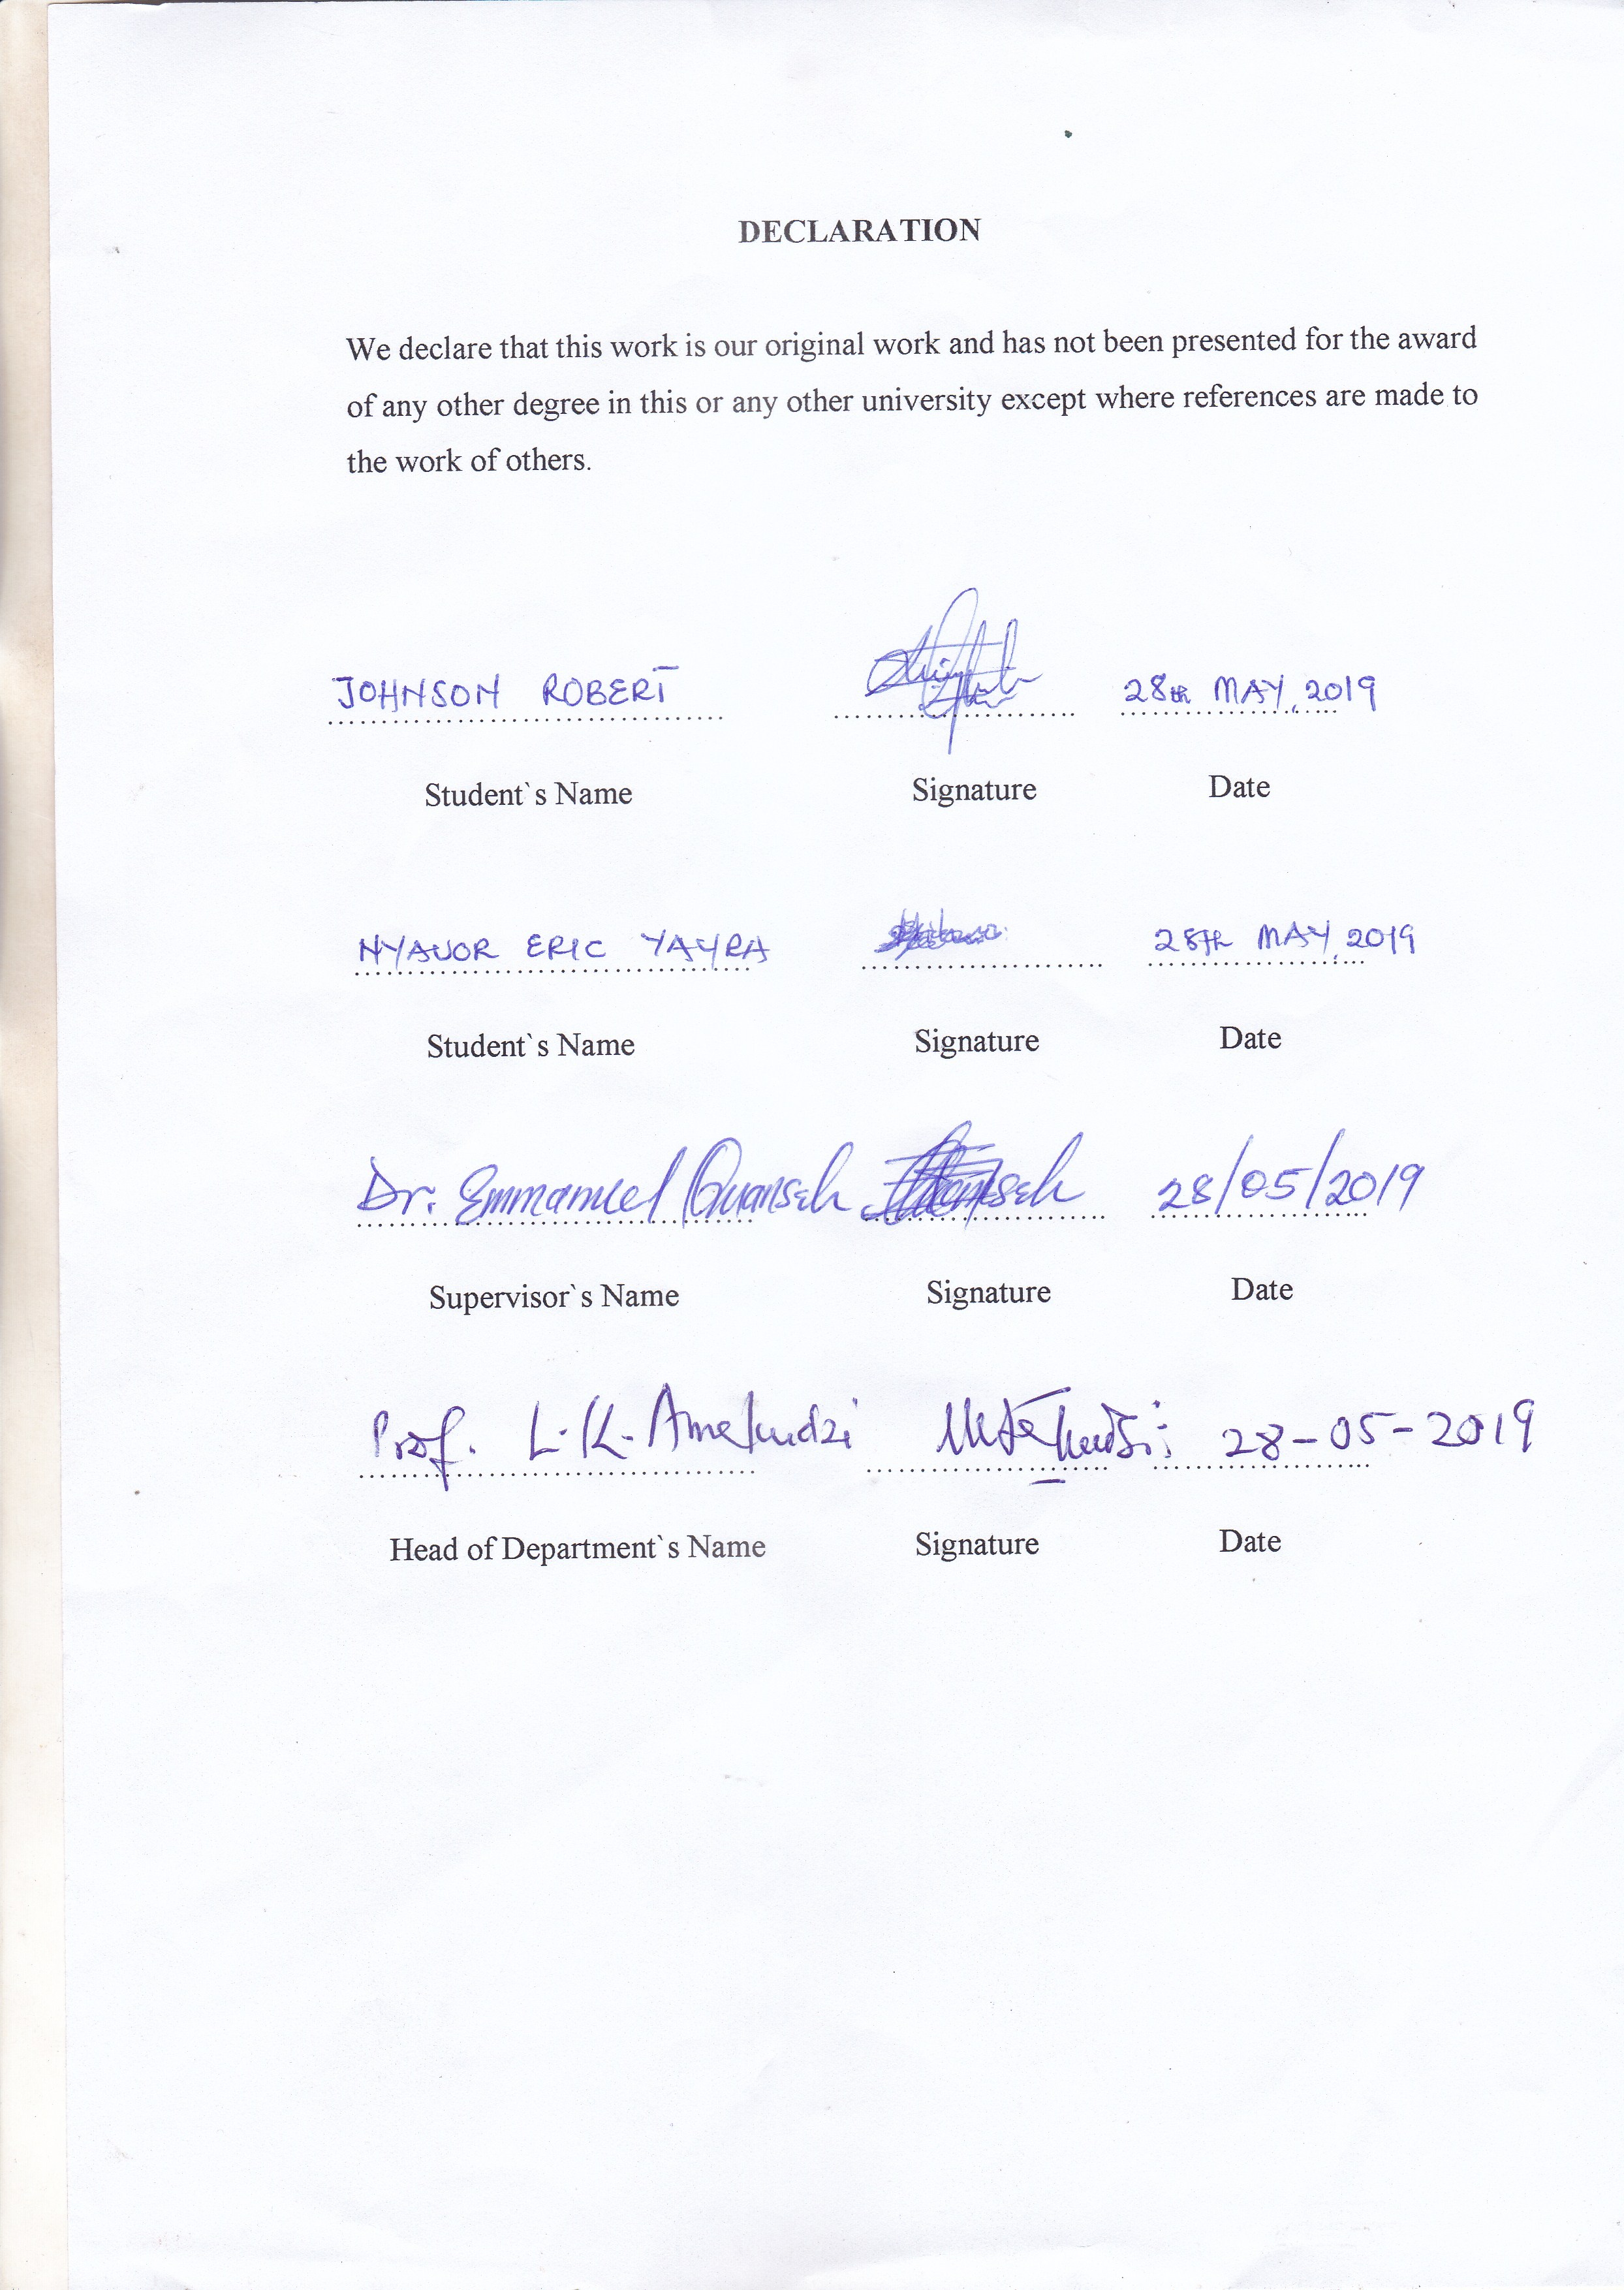 DECLARATION
We declare that this work is our original work and has not been presented for the award
of any other degree in this or any other university except where references are made to
the work of others.
JOHNSON ROBERT 28th MAY, 2019
Student`s Name Signature Date
NYAVOR ERIC YAYRA 28th MAY, 2019
Student`s Name Signature Date
Dr. Emmanuel Quansah 28/05/2019
Supervisor`s Name Signature Date
Prof. L. K. Amekudzi 28-05-2019
Head of Department`s Name Signature Date